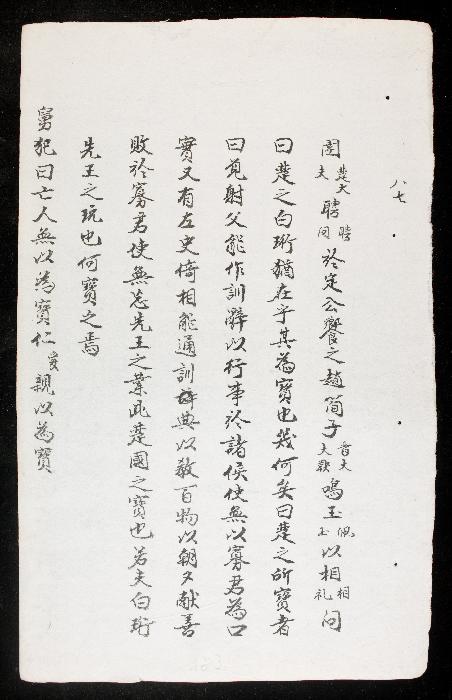 八七
圉楚大夫聘聘問於定公饗之趙簡子晋大夫鞅鳴玉佩玉以相相礼問
曰楚之白珩猶在乎其為寶也幾何矣曰楚之所寶者
曰觅射父能作訓辞以行事於諸侯使無以寡君為口
實又有左史倚相能通訓典以敘百物以朝夕献善
敗於寡君使無忘先王之業此楚國之寶也若夫白珩
先王之玩也何寶之焉
舅犯曰亡人無以為寶仁愛親以為寶